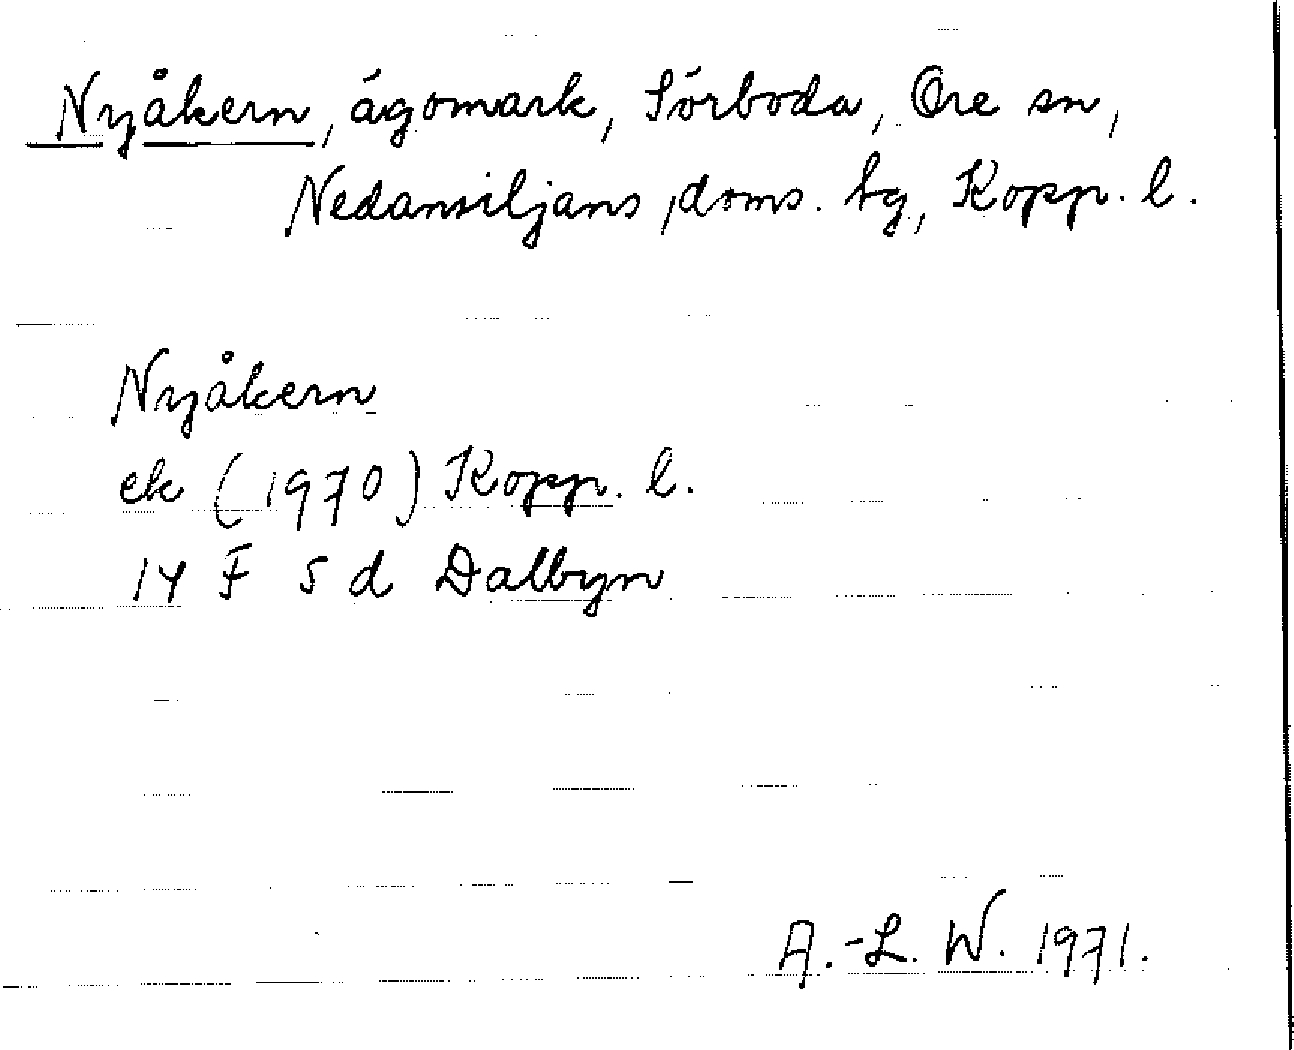 Nyåkern, ägomark, Sörboda, Ore sn,
Nedansiljans doms. tg, Kopp. l.
Nyåkern
ek (1970) Kopp. l.
14 F 5 d Dalbyn
A.-L. W. 1971.